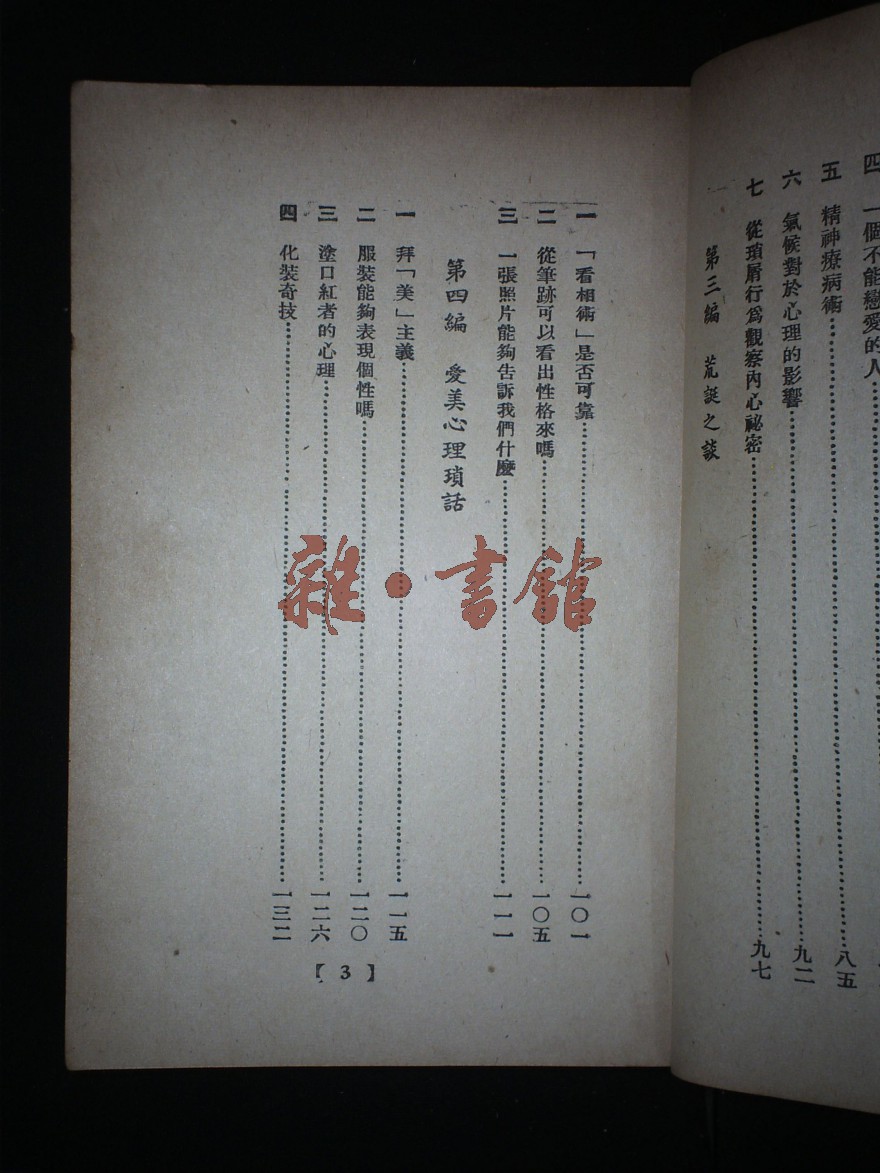 四 一個不能戀愛的人
五 精神療病術……八五
六 氣候對於心理的影響……九二
七 從瑣屑行爲觀察內心祕密……九七
第三編 荒誕之談
一 「看相術」是否可靠……一〇一
二 從筆跡可以看出性格來嗎……一〇五
三 一張照片能夠告訴我們什麼……一一一
第四編 愛美心理瑣話
一 拜「美」主義……一一五
二 服裝能夠表現個性嗎……一二〇
三 塗口紅者的心理……一二六
四 化裝奇技……一三二
【3】
雜·書館